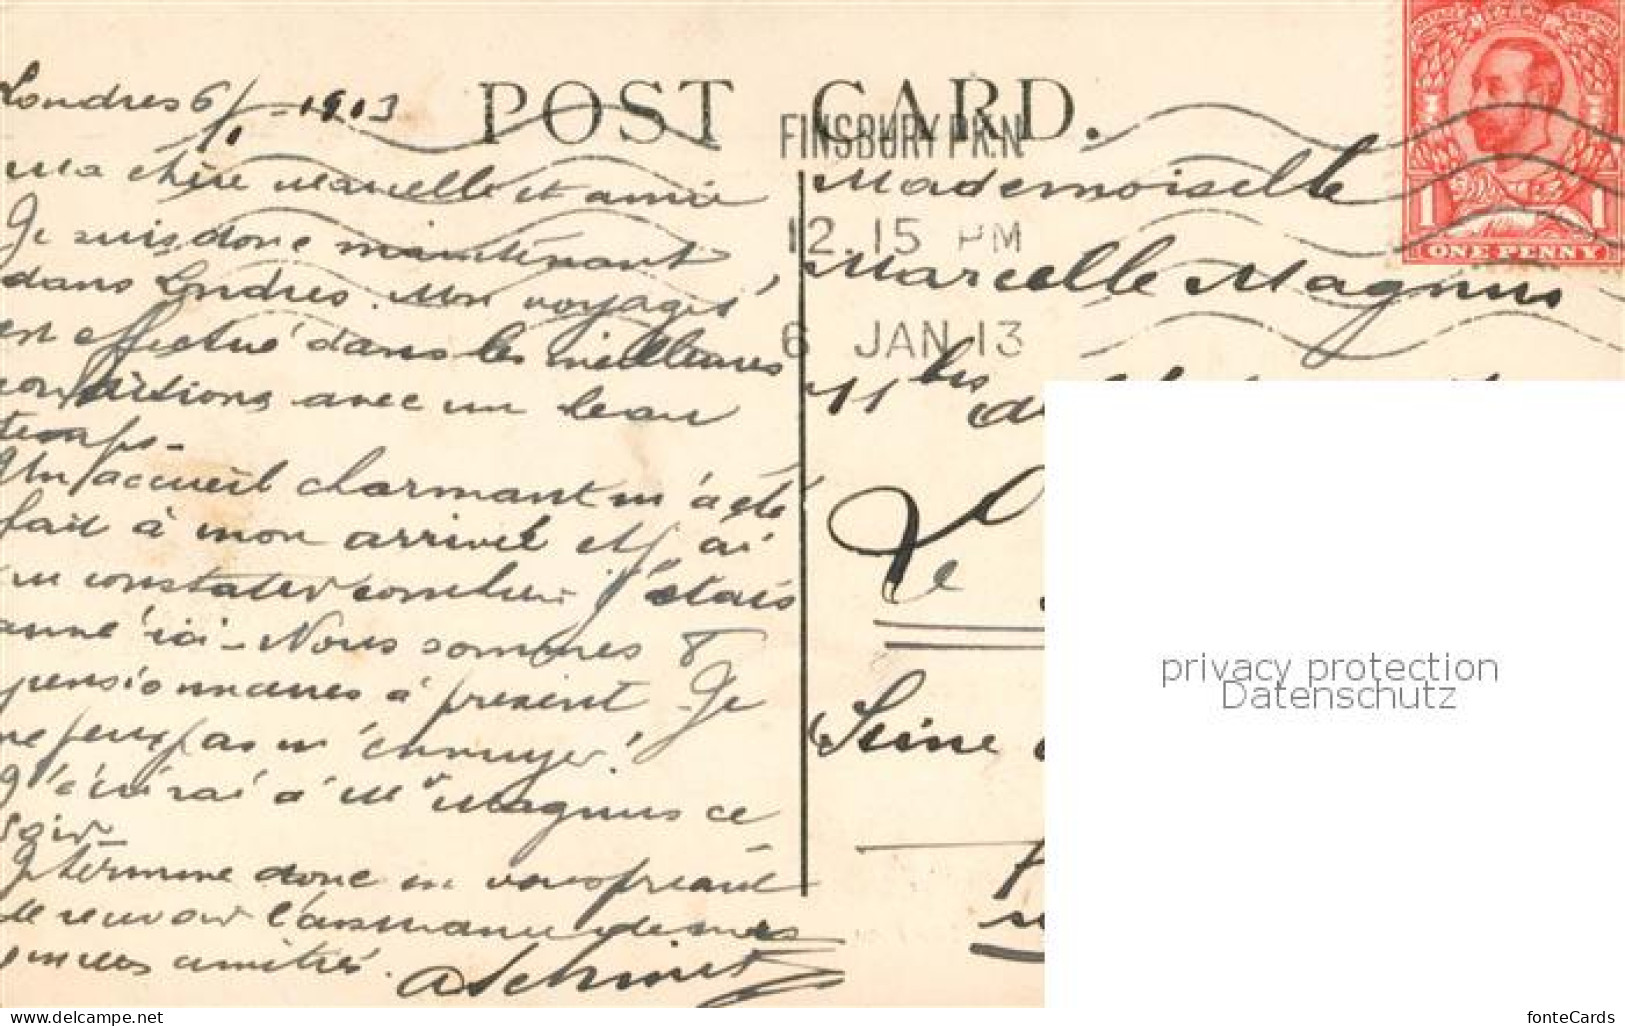 Londres 6/1 - 1913
Ma chère Marcelle et amie
Je suis donc maintenant
dans Londres. Mon voyage s'
est effectué dans les meilleures
conditions avec un beau
temps -
Un accueil charmant m'a été
fait à mon arrivée et j'ai
pu constater combien j'étais
aimé ici - Nous sommes 8
pensionnaires à présent - Je
ne peux pas m'ennuyer!
J'écrirai à Mr Magnus ce
soir -
Je termine donc en vous priant
de recevoir l'assurance de mes
amitiés.
A Schmit
POST CARD.
FINSBURY PK.N.
12.15 PM
6 JAN 13
Mademoiselle
Marcelle Magnus
11 bis
Le
Seine
1 1
ONE PENNY
privacy protection
Datenschutz
www.delcampe.net
fonteCards